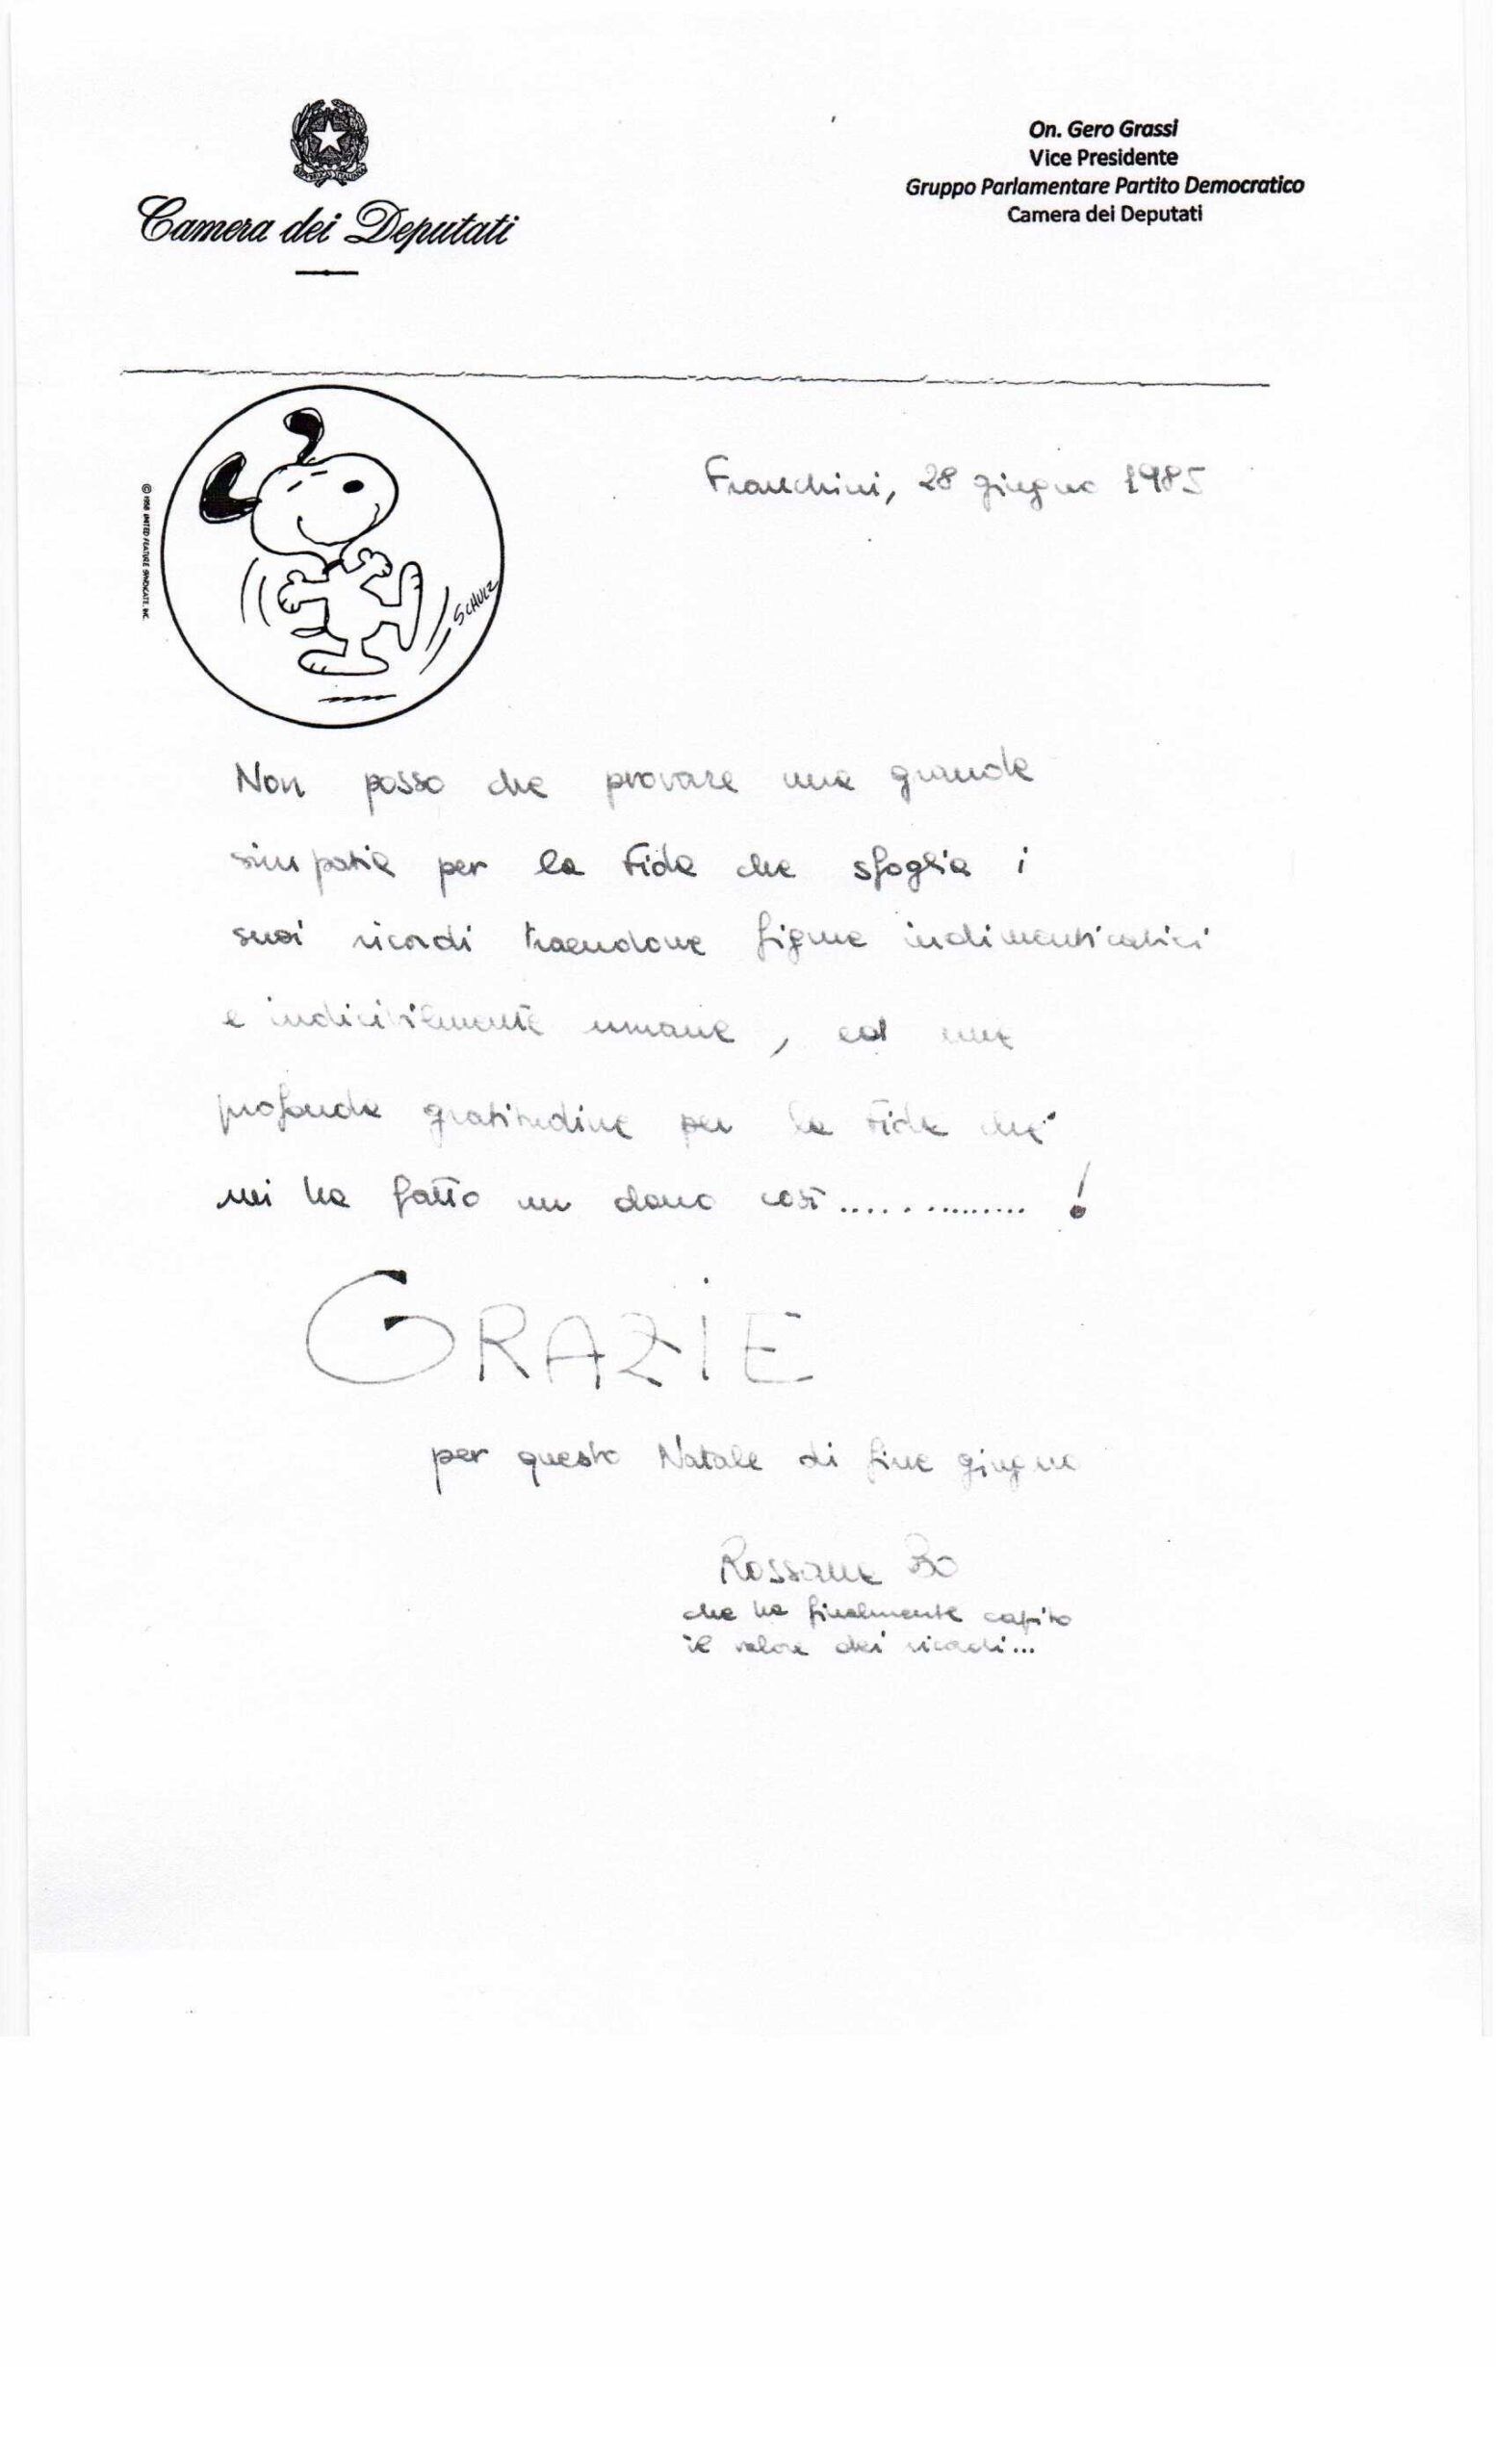 On. Gero Grassi
Vice Presidente
Gruppo Parlamentare Partito Democratico
Camera dei Deputati
Camera dei Deputati
© 1958 UNITED FEATURE SYNDICATE, INC.
SCHULZ
Franchini, 28 giugno 1985
Non posso che provare una grande
simpatia per la Fida che sfoglia i
suoi ricordi traendone figure indimenticabili
e indicibilmente umane, ed una
profonda gratitudine per la Fida che
mi ha fatto un dono così.................!
GRAZIE
per questo Natale di fine giugno
Rossana Bo
che ha finalmente capito
il valore dei ricordi...